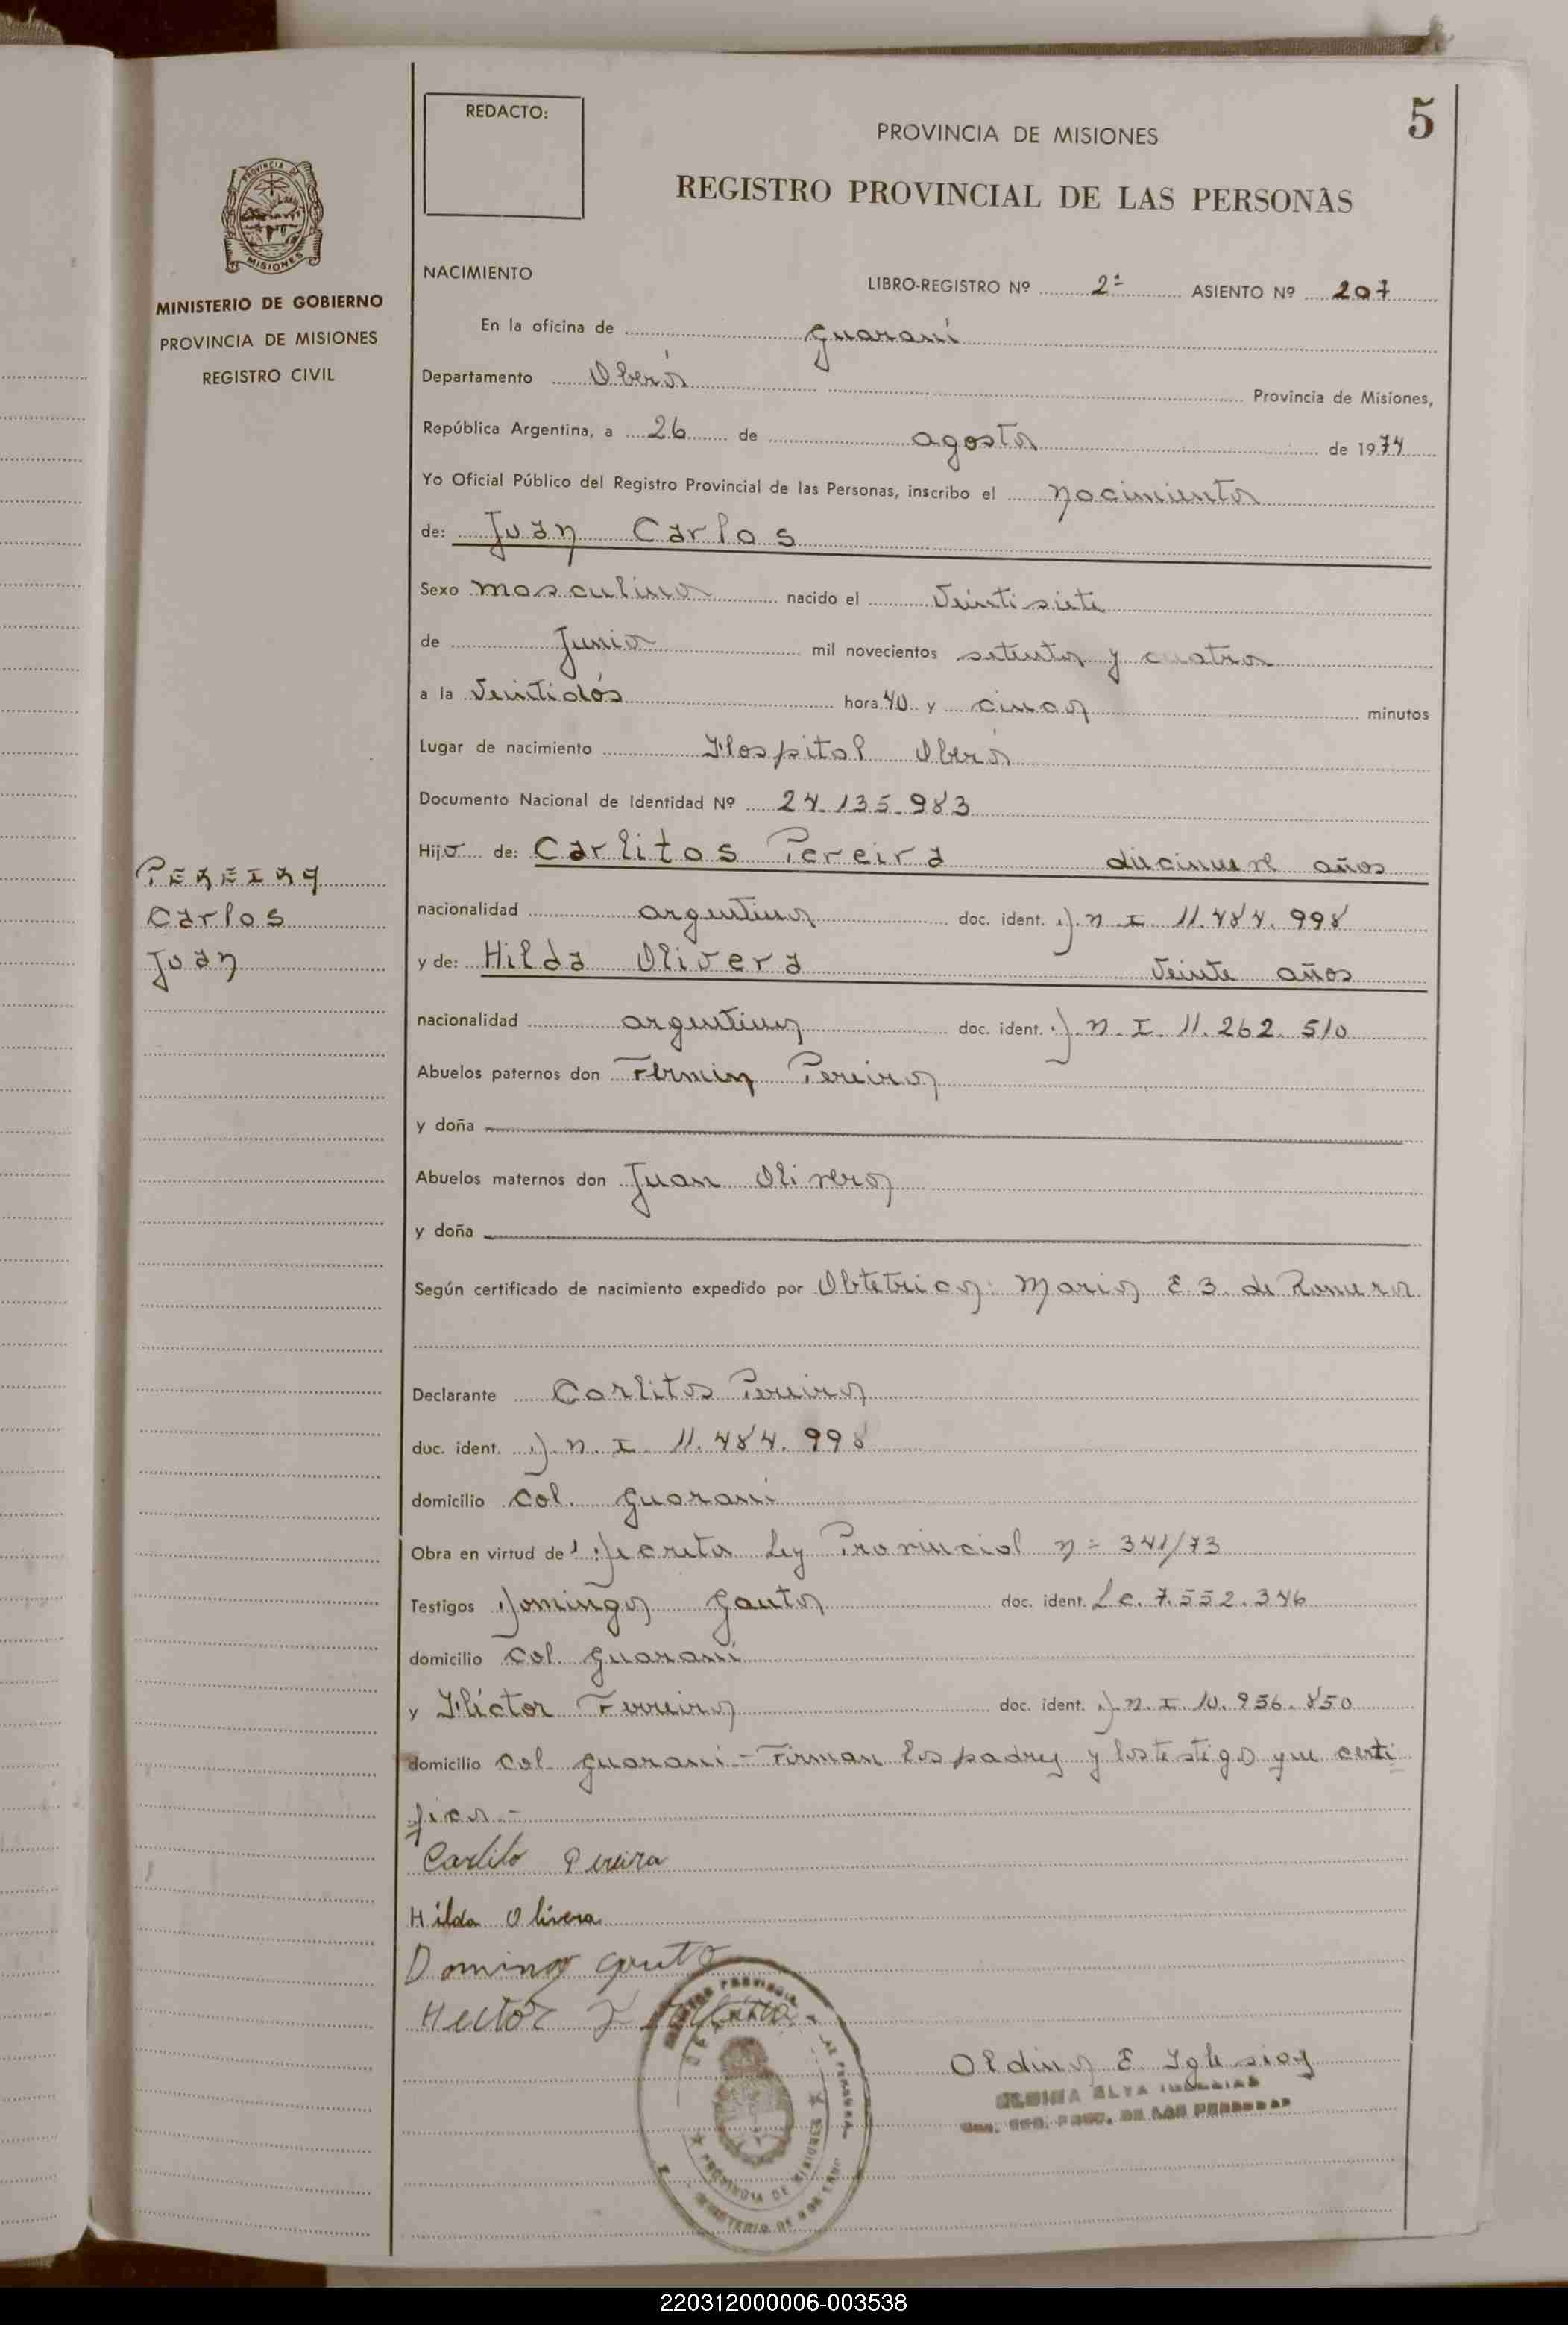 REDACTO:
5
PROVINCIA DE MISIONES
REGISTRO PROVINCIAL DE LAS PERSONAS
PROVINCIA DE
MISIONES
MINISTERIO DE GOBIERNO
PROVINCIA DE MISIONES
REGISTRO CIVIL
NACIMIENTO
LIBRO-REGISTRO Nº 2º ASIENTO Nº 207
En la oficina de Guaraní
Departamento Oberá Provincia de Misiones,
República Argentina, a 26 de agosto de 1974
Yo Oficial Público del Registro Provincial de las Personas, inscribo el nacimiento
de: Juan Carlos
Sexo masculino nacido el Veintisiete
de Junio mil novecientos setenta y cuatro
a la Veintidós hora 40 y cinco minutos
Lugar de nacimiento Hospital Oberá
Documento Nacional de Identidad Nº 24.135.983
Hijo de: Carlitos Pereira diecinueve años
PEREIRA
Carlos
Juan
nacionalidad argentina doc. ident. D.N.I 11.484.998
y de: Hilda Olivera Veinte años
nacionalidad argentina doc. ident. D.N.I. 11.262.510
Abuelos paternos don Fermin Pereira
y doña
Abuelos maternos don Juan Olivera
y doña
Según certificado de nacimiento expedido por Obtetrica: Maria E. B. de Romero
Declarante Carlitos Pereira
doc. ident. D.N.I. 11.484.998
domicilio Col. Guaraní
Obra en virtud de Decreto Ley Provincial Nº 341/73
Testigos Domingo Gauto doc. ident. L.E. 7.552.346
domicilio Col. Guaraní
y Héctor Ferreira doc. ident. D.N.I. 10.956.850
domicilio Col Guaraní - Firman los padres y los testigos que certi
fico.-
Carlito Pereira
Hilda Olivera
Domingo Gauto
Hector Ferreira
Oldina E. Iglesias
OLDINA ELVA IGLESIAS
REG. PROV. DE LAS PERSONAS
PROVINCIA DE MISIONES
220312000006-003538